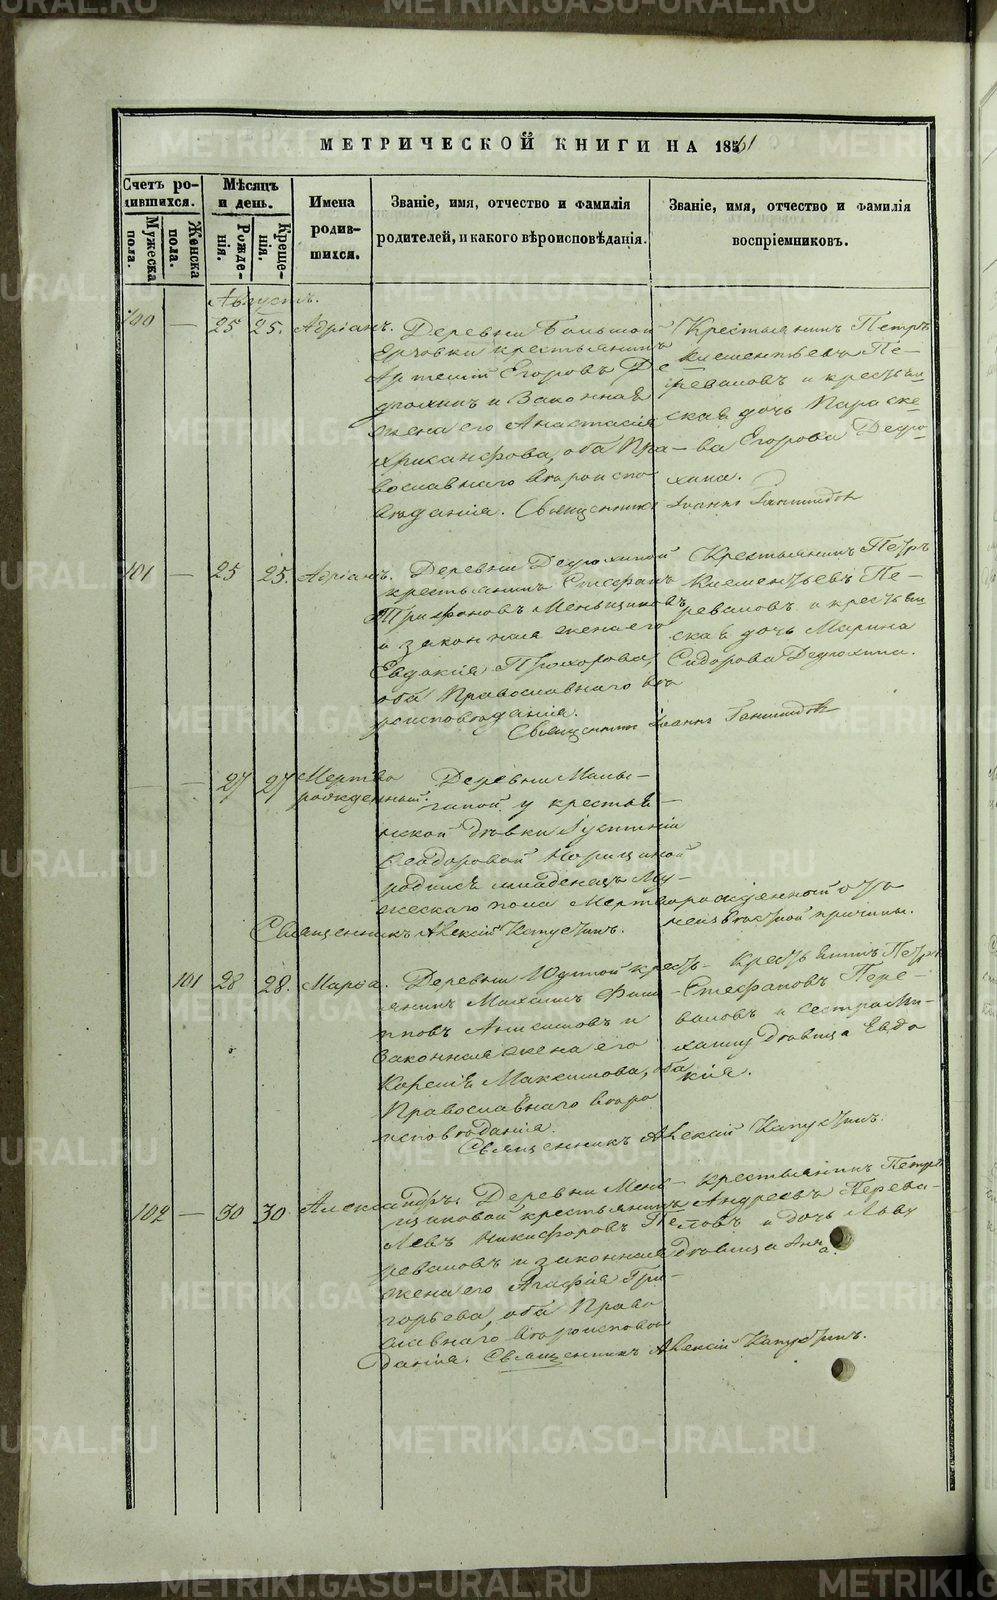 МЕТРИЧЕСКОЙ КНИГИ НА 1861
Счетъ ро-
дившихся.
Мужеска
пола.
Женска
пола.
Мѣсяцъ
и день.
Рожде-
нія.
Креще-
нія.
Имена
родив-
шихся.
Званіе, имя, отчество и фамилія
родителей, и какого вѣроисповѣданія.
Званіе, имя, отчество и фамилія
воспріемниковъ.
Августъ.
100 — 25 25. Адріанъ.
Деревни Большой
крестьянинъ
Артемій Егоровъ Де
дюхинъ и Законная
жена его Анастасія
оба Пра-
вославнаго вѣроиспо
вѣданія. Священникъ Іоаннъ
Крестьянинъ Петръ
Клементьевъ Пе-
реваловъ и крестьян
ская дочь Параске-
ва Егорова Дедю-
хина.
101 — 25 25. Адріанъ.
Деревни Дедюхиной
крестьянинъ Стефанъ
Трифоновъ Меньщиковъ
и законная жена его
Евдокія Прохорова,
оба Православнаго вѣ
роисповѣданія.
Священникъ Іоаннъ
Крестьянинъ Петръ
Клементьевъ Пе-
реваловъ и крестьян
ская дочь Марина
Сидорова Дедюхина.
— — 27 27 Мертво
рожденный.
Деревни Малы-
гиной у крестья-
нской дѣвки
Ѳеодоровой
родился младенецъ Му-
жескаго пола Мертворожденный отъ
неизвѣстной причины.
Священникъ Алексій Капустинъ.
101 28 28. Марѳа.
Деревни Юдиной кресть-
янинъ Максимъ Фили
пповъ Анисимовъ и
Законная жена его
Максимова, оба
Православнаго вѣро
исповѣданія.
Священникъ Алексій Капустинъ
Крестьянинъ Петръ
Стефановъ Пере-
валовъ и сестра Ми-
хаилу дѣвица Евдо
кія.
102 — 30 30. Александръ.
Деревни Мень-
щиковой крестьянинъ
Левъ Никифоровъ Пе
реваловъ и законная
жена его Агафія Гри-
горьева, оба Право
славнаго вѣроисповѣ
данія. Священникъ Алексій Капустинъ.
Крестьянинъ Петръ
Андреевъ Перева-
ловъ и дочь Льву
дѣвица Анна.
METRIKI.GASO-URAL.RU